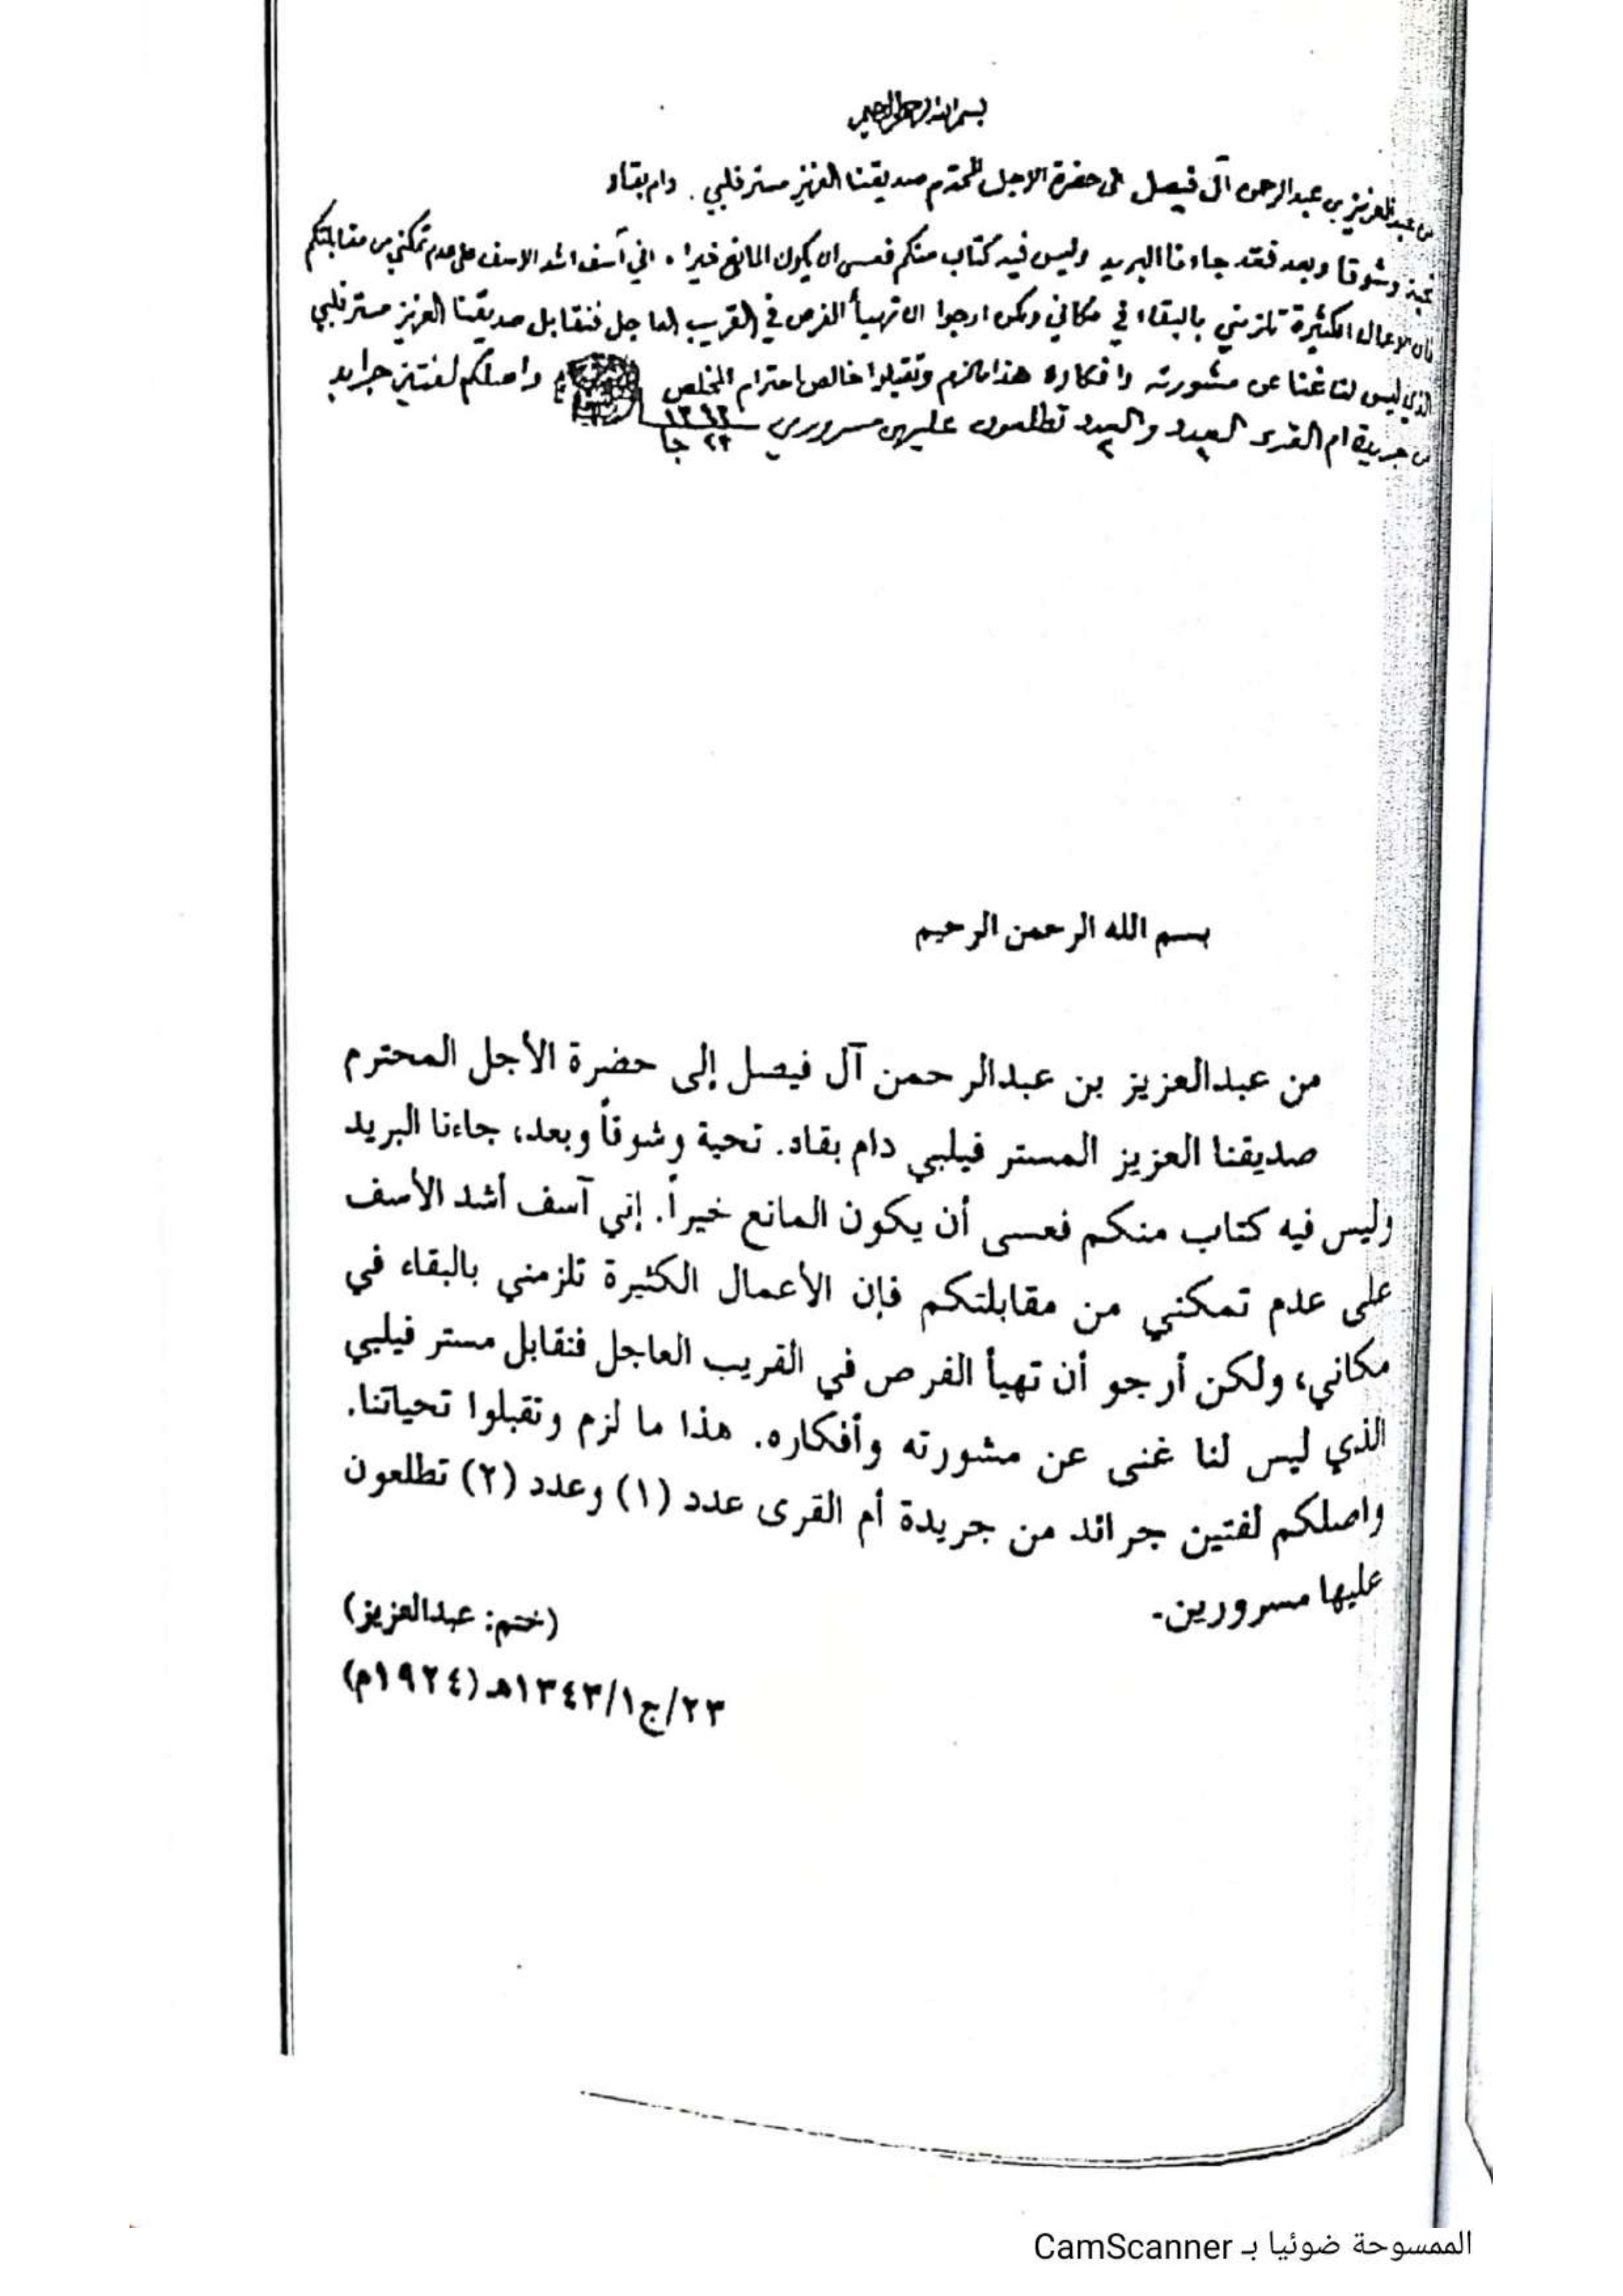 بسم الله الرحمن الرحيم
من عبدالعزيز بن عبدالرحمن آل فيصل الى حضرة الاجل المحترم صديقنا العزيز مستر فلبي . دام بقاه
تحية وشوقا وبعد فقد جاءنا البريد وليس فيه كتاب منكم فعسى ان يكون المانع خيرا . اني آسف اشد الاسف على عدم تمكني من مقابلتكم
فان الاعمال الكثيرة تلزمني بالبقاء في مكاني ولكن ارجوا ان تهيأ الفرص في القريب العاجل فنقابل صديقنا العزيز مستر فلبي
الذي ليس لنا غنا عن مشورته وافكاره هذا مالزم وتقبلوا خالص احترام المخلص واصلكم لفتين جرايد
من جريدة ام القرى العدد ١ والعدد ٢ تطلعون عليهن مسرورين
٢٣ جا
بسم الله الرحمن الرحيم
من عبدالعزيز بن عبدالرحمن آل فيصل إلى حضرة الأجل المحترم
صديقنا العزيز المستر فيلبي دام بقاه. تحية وشوقاً وبعد، جاءنا البريد
وليس فيه كتاب منكم فعسى أن يكون المانع خيراً. إني آسف أشد الأسف
على عدم تمكني من مقابلتكم فإن الأعمال الكثيرة تلزمني بالبقاء في
مكاني، ولكن أرجو أن تهيأ الفرص في القريب العاجل فنقابل مستر فيلبي
الذي ليس لنا غنى عن مشورته وأفكاره. هذا ما لزم وتقبلوا تحياتنا.
واصلكم لفتين جرائد من جريدة أم القرى عدد (١) وعدد (٢) تطلعون
عليها مسرورين.
(ختم: عبدالعزيز)
٢٣/ج١/١٣٤٣هـ (١٩٢٤م)
الممسوحة ضوئيا بـ CamScanner